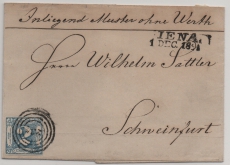 Inliegend Muster ohne Werth
IENA.
1 DEC. 18
Herrn Wilhelm Sattler
Schweinfurt